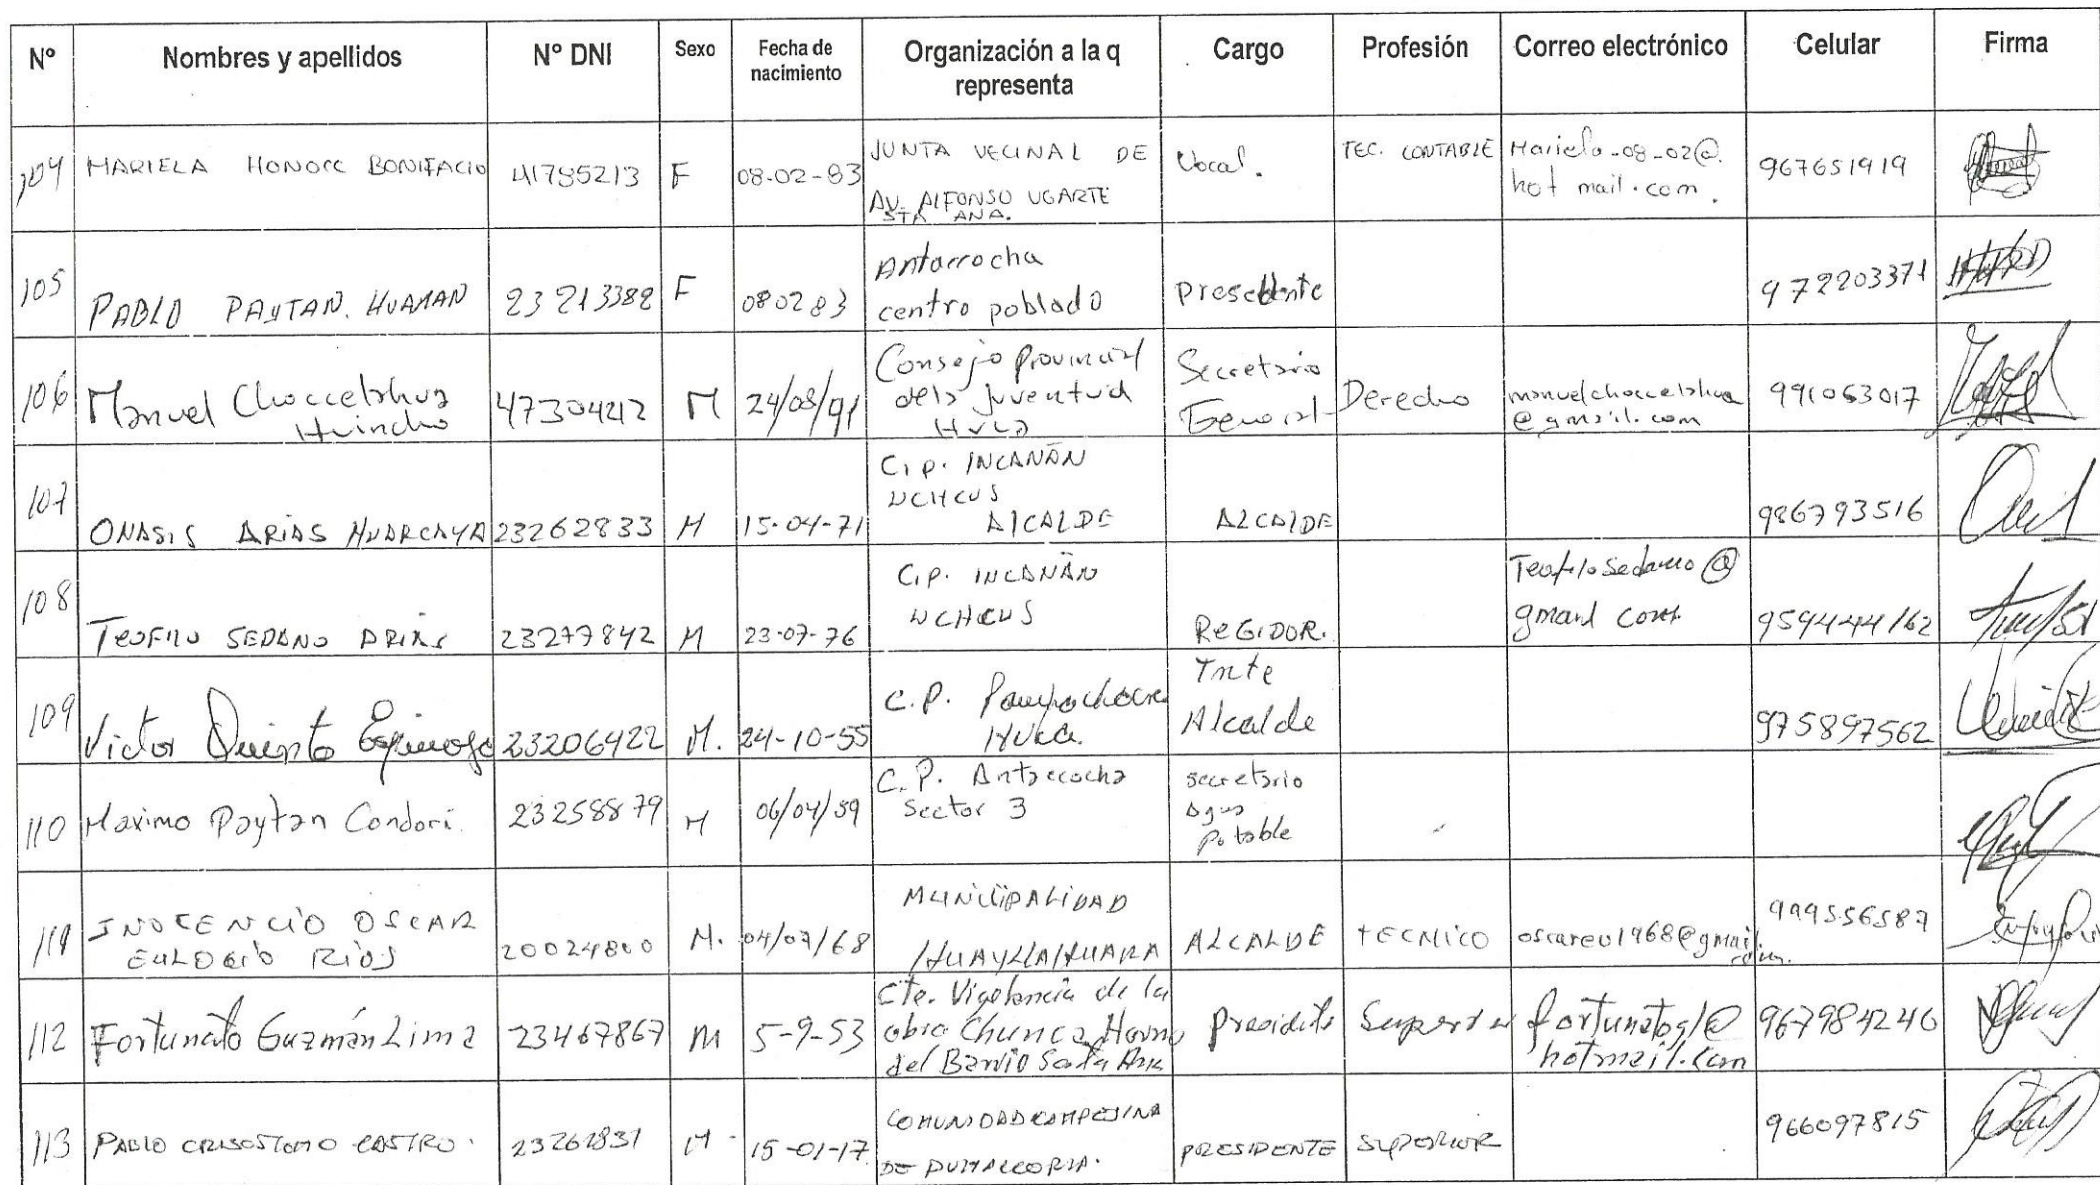 Nº Nombres y apellidos Nº DNI Sexo Fecha de nacimiento Organización a la q representa Cargo Profesión Correo electrónico Celular Firma
104 MARIELA HONOCC BONIFACIO 41785213 F 08-02-83 JUNTA VECINAL DE AV. ALFONSO UGARTE STA ANA. Vocal. TEC. CONTABLE Mariela-08-02@. hotmail.com. 967651919
105 PABLO PAYTAN. HUAMAN 23213382 F 080283 Antaccocha centro poblado 972203371
106 Manuel Choccelahua Huincho 47304212 M 24/08/91 Consejo Provincial dela Juventud Hvca Secretario General Derecho manuelchoccelahua @gmail.com 991063017
107 ONASIS ARIAS HUARCAYA 23262833 M 15-04-71 C.p. INCAÑAN UCHCUS ALCALDE ALCALDE 986793516
108 TEOFILO SEDANO ARIAS 23277842 M 23-07-76 C.P. INCAÑAN UCHCUS REGIDOR. Teofilosedano@ 959444162
109 Victor Quinto Espinoza 23206422 M. 24-10-55 C.P. HVCA. Tnte Alcalde 975897562
110 Maximo Paytan Condori. 23258879 M 06/04/59 C.P. Antaccocha Sector 3 secretario Agua Potable
111 INOCENCIO OSCAR EULOGIO RIOS 20024800 M. 04/07/68 MUNICIPALIDAD HUAYLLAHUARA ALCALDE TECNICO oscareu1968@gmail.com. 999556587
112 Fortunato Guzmán Lima 23467867 M 5-9-53 Cte. Vigilancia de la obra Chunca Horno del Barrio Santa Ana Presidente fortunatogl@ hotmail.com 967984246
113 PABLO CRISOSTOMO CASTRO. 23261831 M 15-01-17 COMUNIDAD CAMPESINA DE PRESIDENTE SUPERIOR 966097815